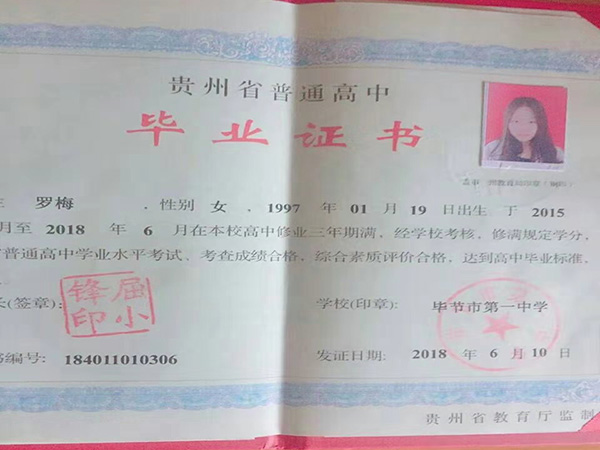 贵州省普通高中
毕业证书
罗梅 , 性别 女 , 1997 年 01 月 19 日出生 于 2015
月至 2018 年 6 月在本校高中修业三年期满, 经学校考核, 修满规定学分,
普通高中学业水平考试、考查成绩合格, 综合素质评价合格, 达到高中毕业标准,
长(签章): 屈小锋印 学校(印章): 毕节市第一中学
编号: 184011010306 发证日期: 2018 年 6 月 10 日
贵州省教育厅监制